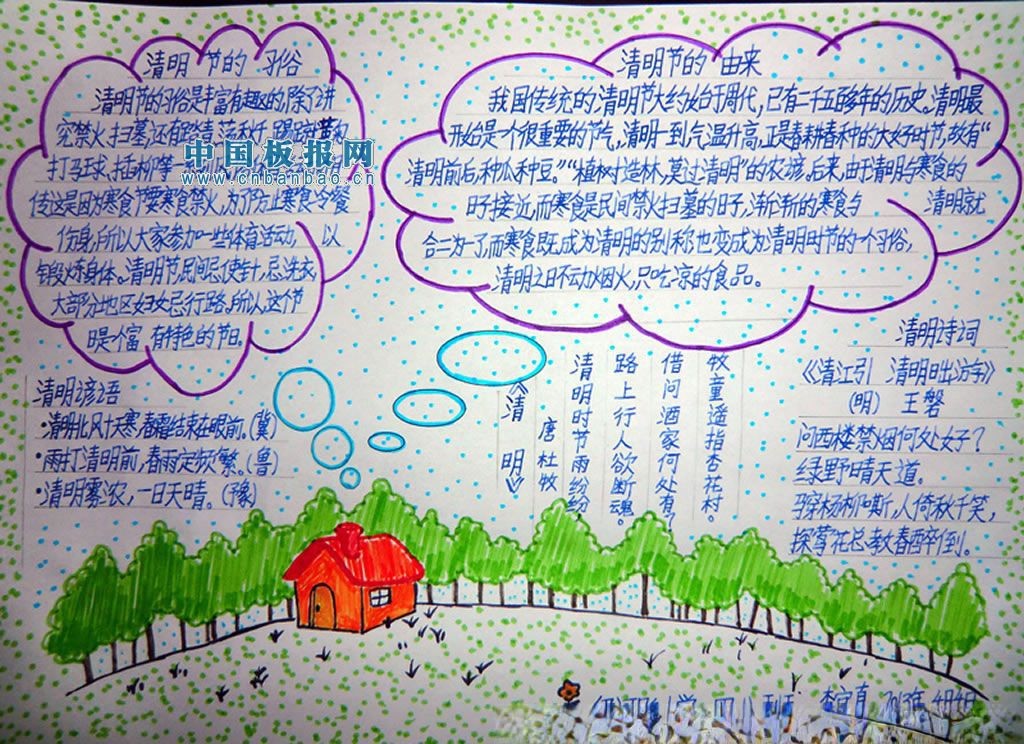 清明节的习俗
清明节的习俗是丰富有趣的,除了讲
究禁火扫墓,还有踏青、荡秋千、踢蹴
打马球、插柳等一
传这是因为寒食节要寒食禁火,为了防止寒食冷餐
伤身,所以大家参加一些体育活动, 以
锻炼身体。清明节,民间忌使针,忌洗衣,
大部分地区妇女忌行路。所以,这个节
日是个富有特色的节日。
中国板报网
www.cnbanbao.cn
清明节的由来
我国传统的清明节大约始于周代,已有二千五百多年的历史。清明最
开始是一个很重要的节气,清明一到气温升高,正是春耕春种的大好时节,故有“
清明前后,种瓜种豆。”“植树造林,莫过清明”的农谚。后来,由于清明与寒食的
日子接近,而寒食是民间禁火扫墓的日子,渐渐的寒食与 清明就
合二为一了,而寒食既成为清明的别称也变成为清明时节的一个习俗,
清明之日不动烟火,只吃凉的食品。
清明谚语
·清明北风十天寒,春霜结束在眼前。(冀)
·雨打清明前,春雨定频繁。(鲁)
·清明雾浓,一日天晴。(豫)
《清明》
唐 杜牧
清明时节雨纷纷
路上行人欲断魂。
借问酒家何处有?
牧童遥指杏花村。
清明诗词
《清江引 清明日出游》
(明) 王磐
问西楼禁烟何处好?
绿野晴天道。
马穿杨柳嘶,人倚秋千笑,
探莺花总教春醉倒。